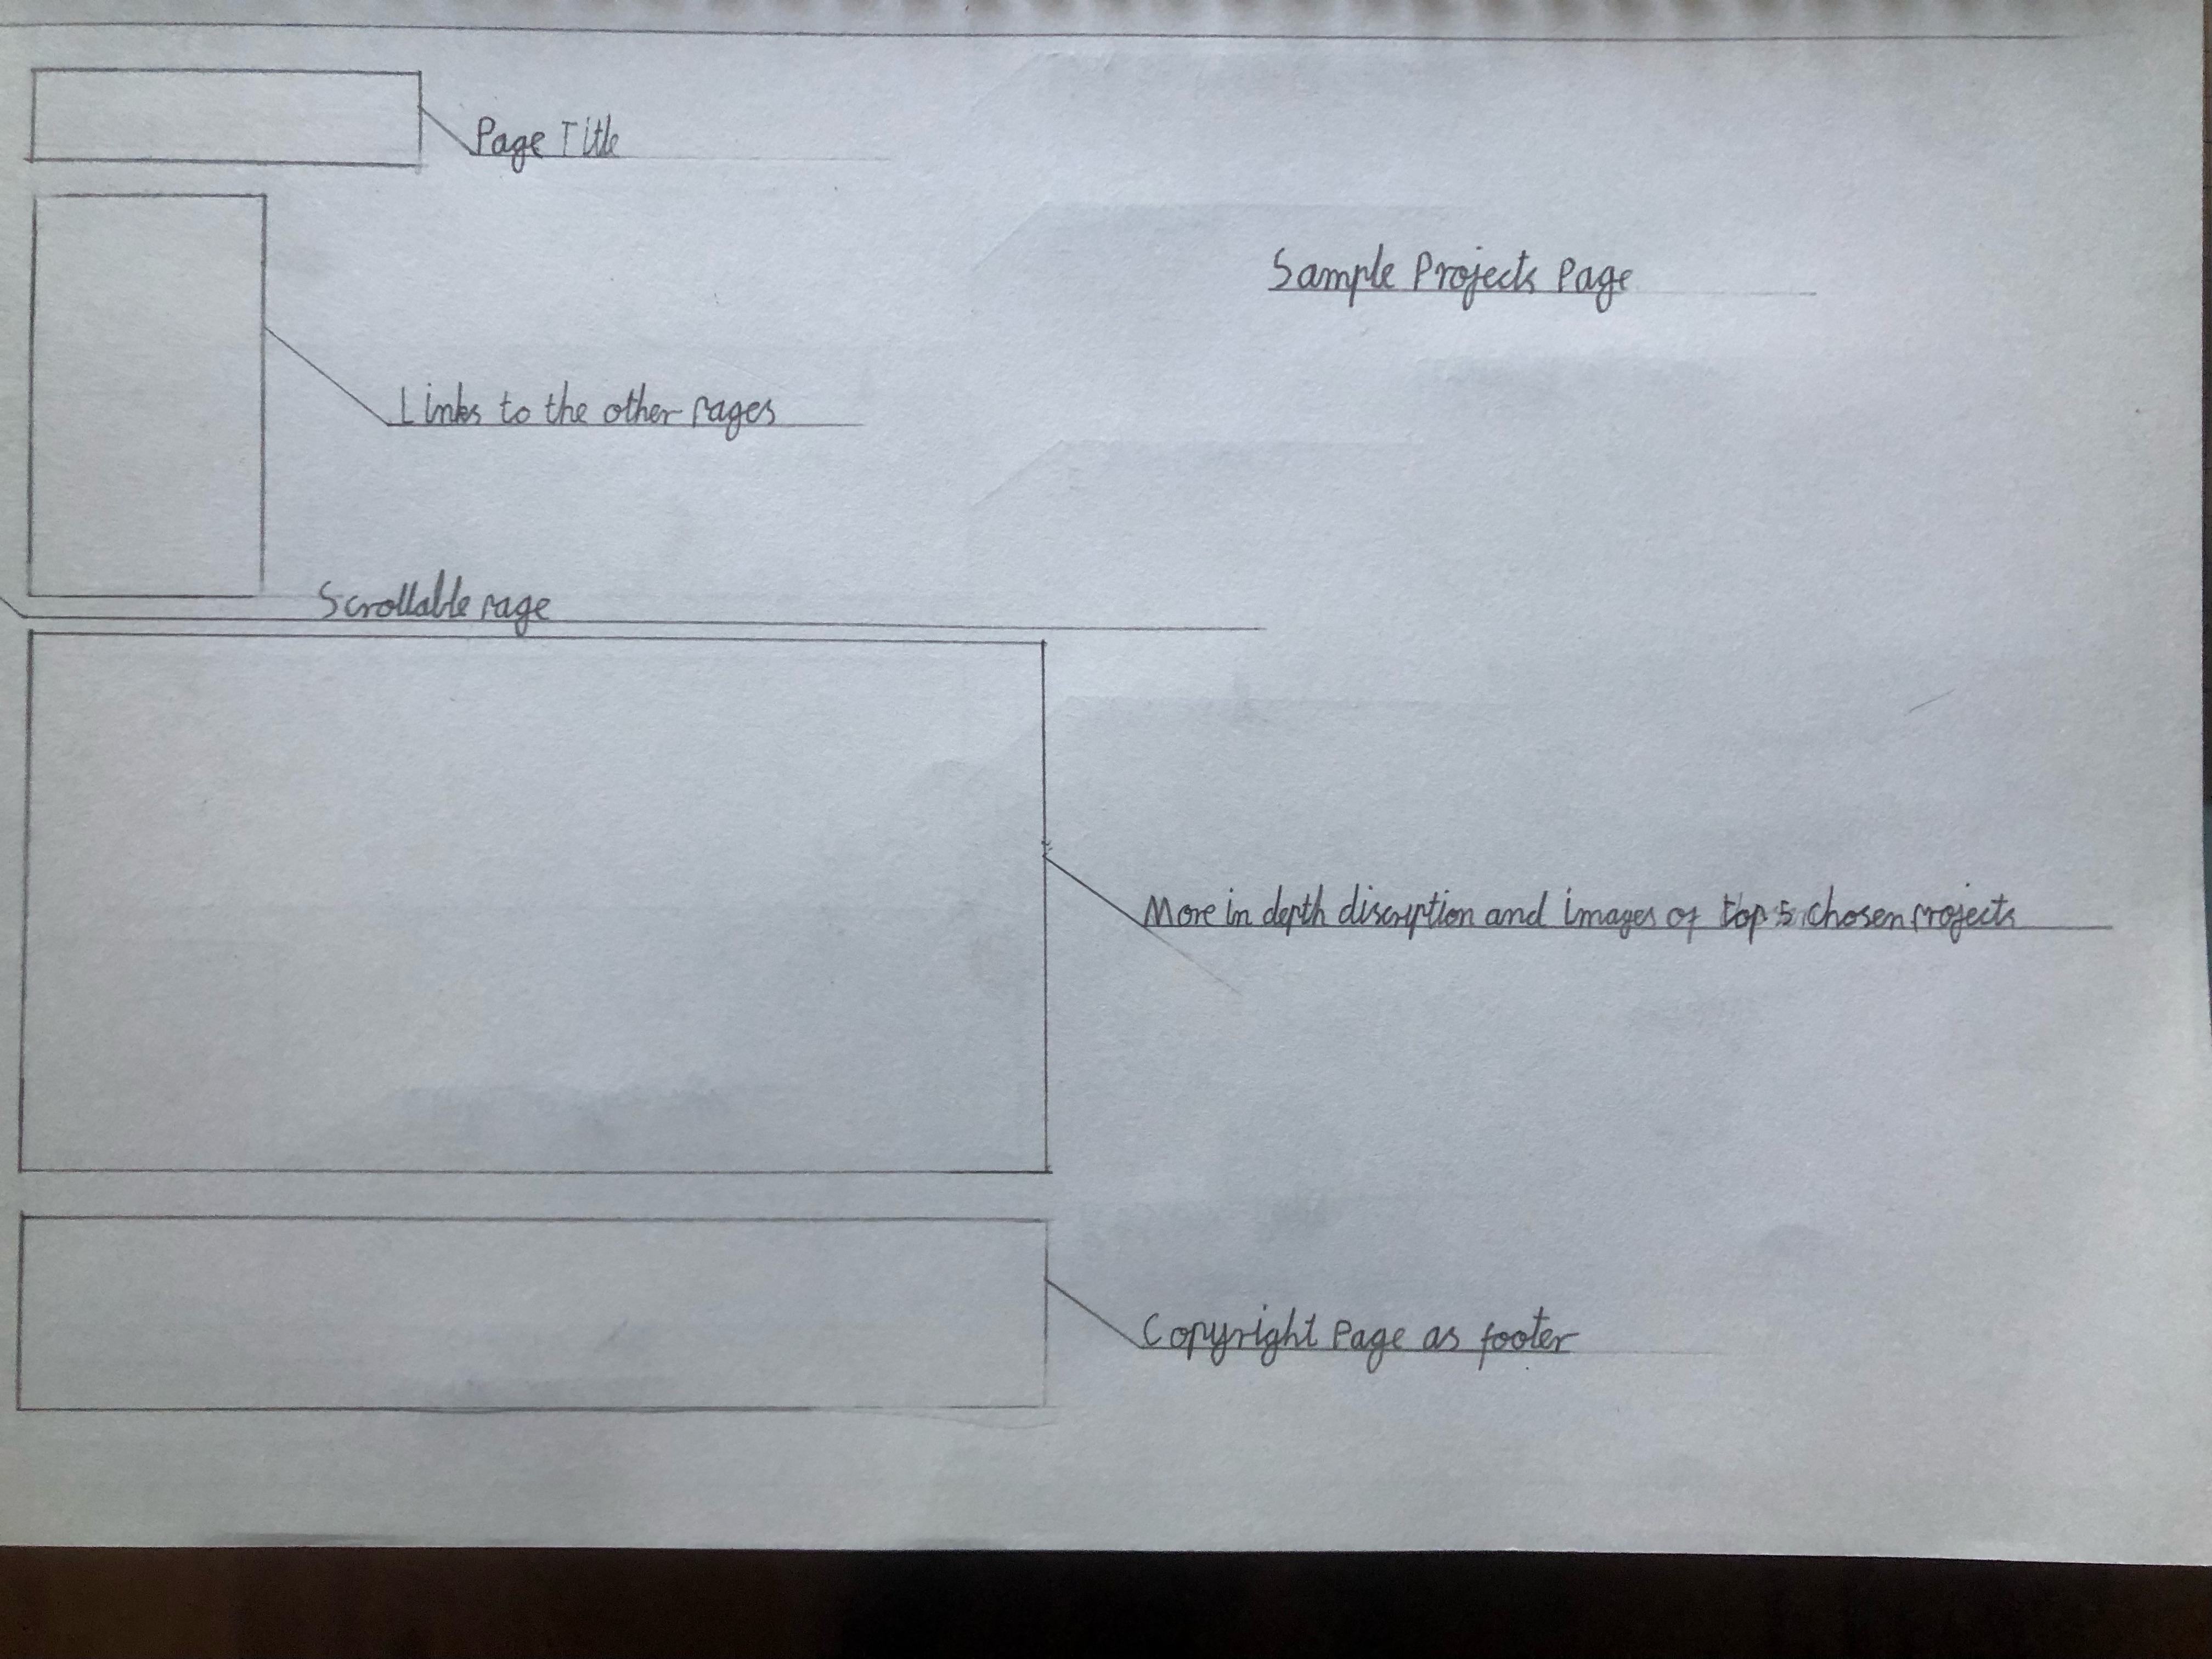 Page Title
Sample Projects Page
Links to the other pages
Scrollable page
More in depth discription and images of top 5 chosen projects
Copyright Page as footer